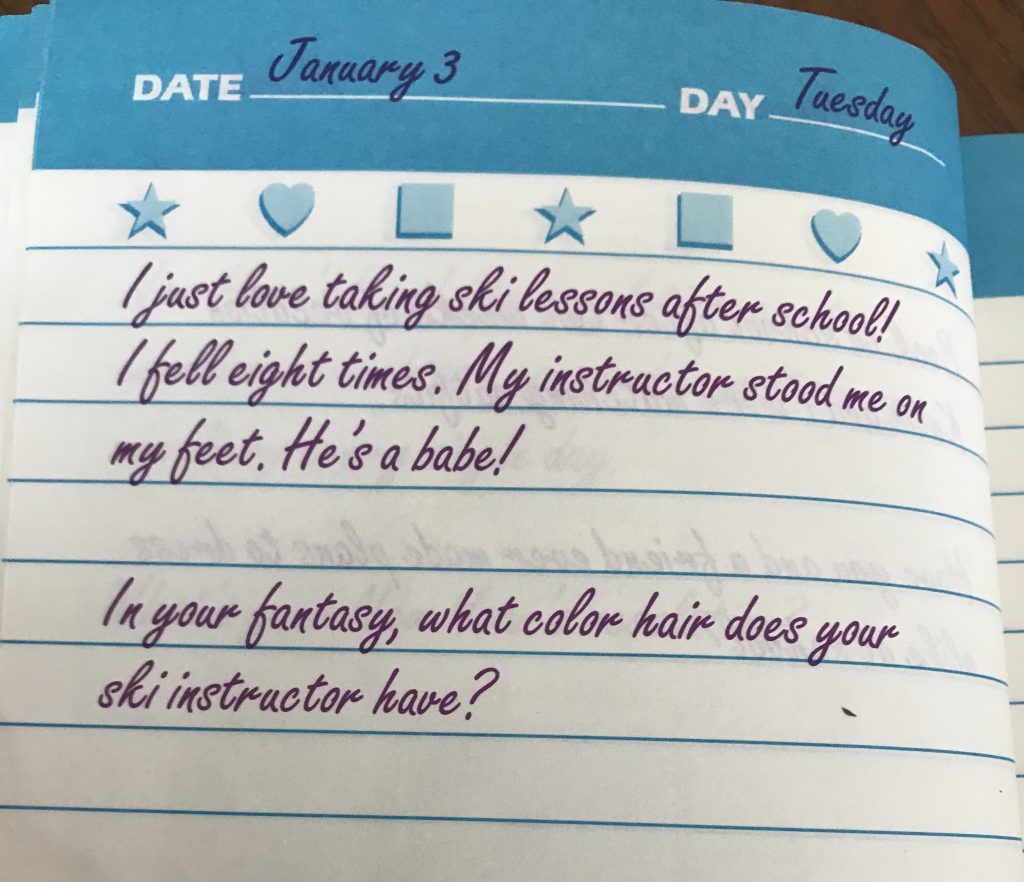 DATE January 3 DAY Tuesday
I just love taking ski lessons after school!
I fell eight times. My instructor stood me on
my feet. He's a babe!
In your fantasy, what color hair does your
ski instructor have?